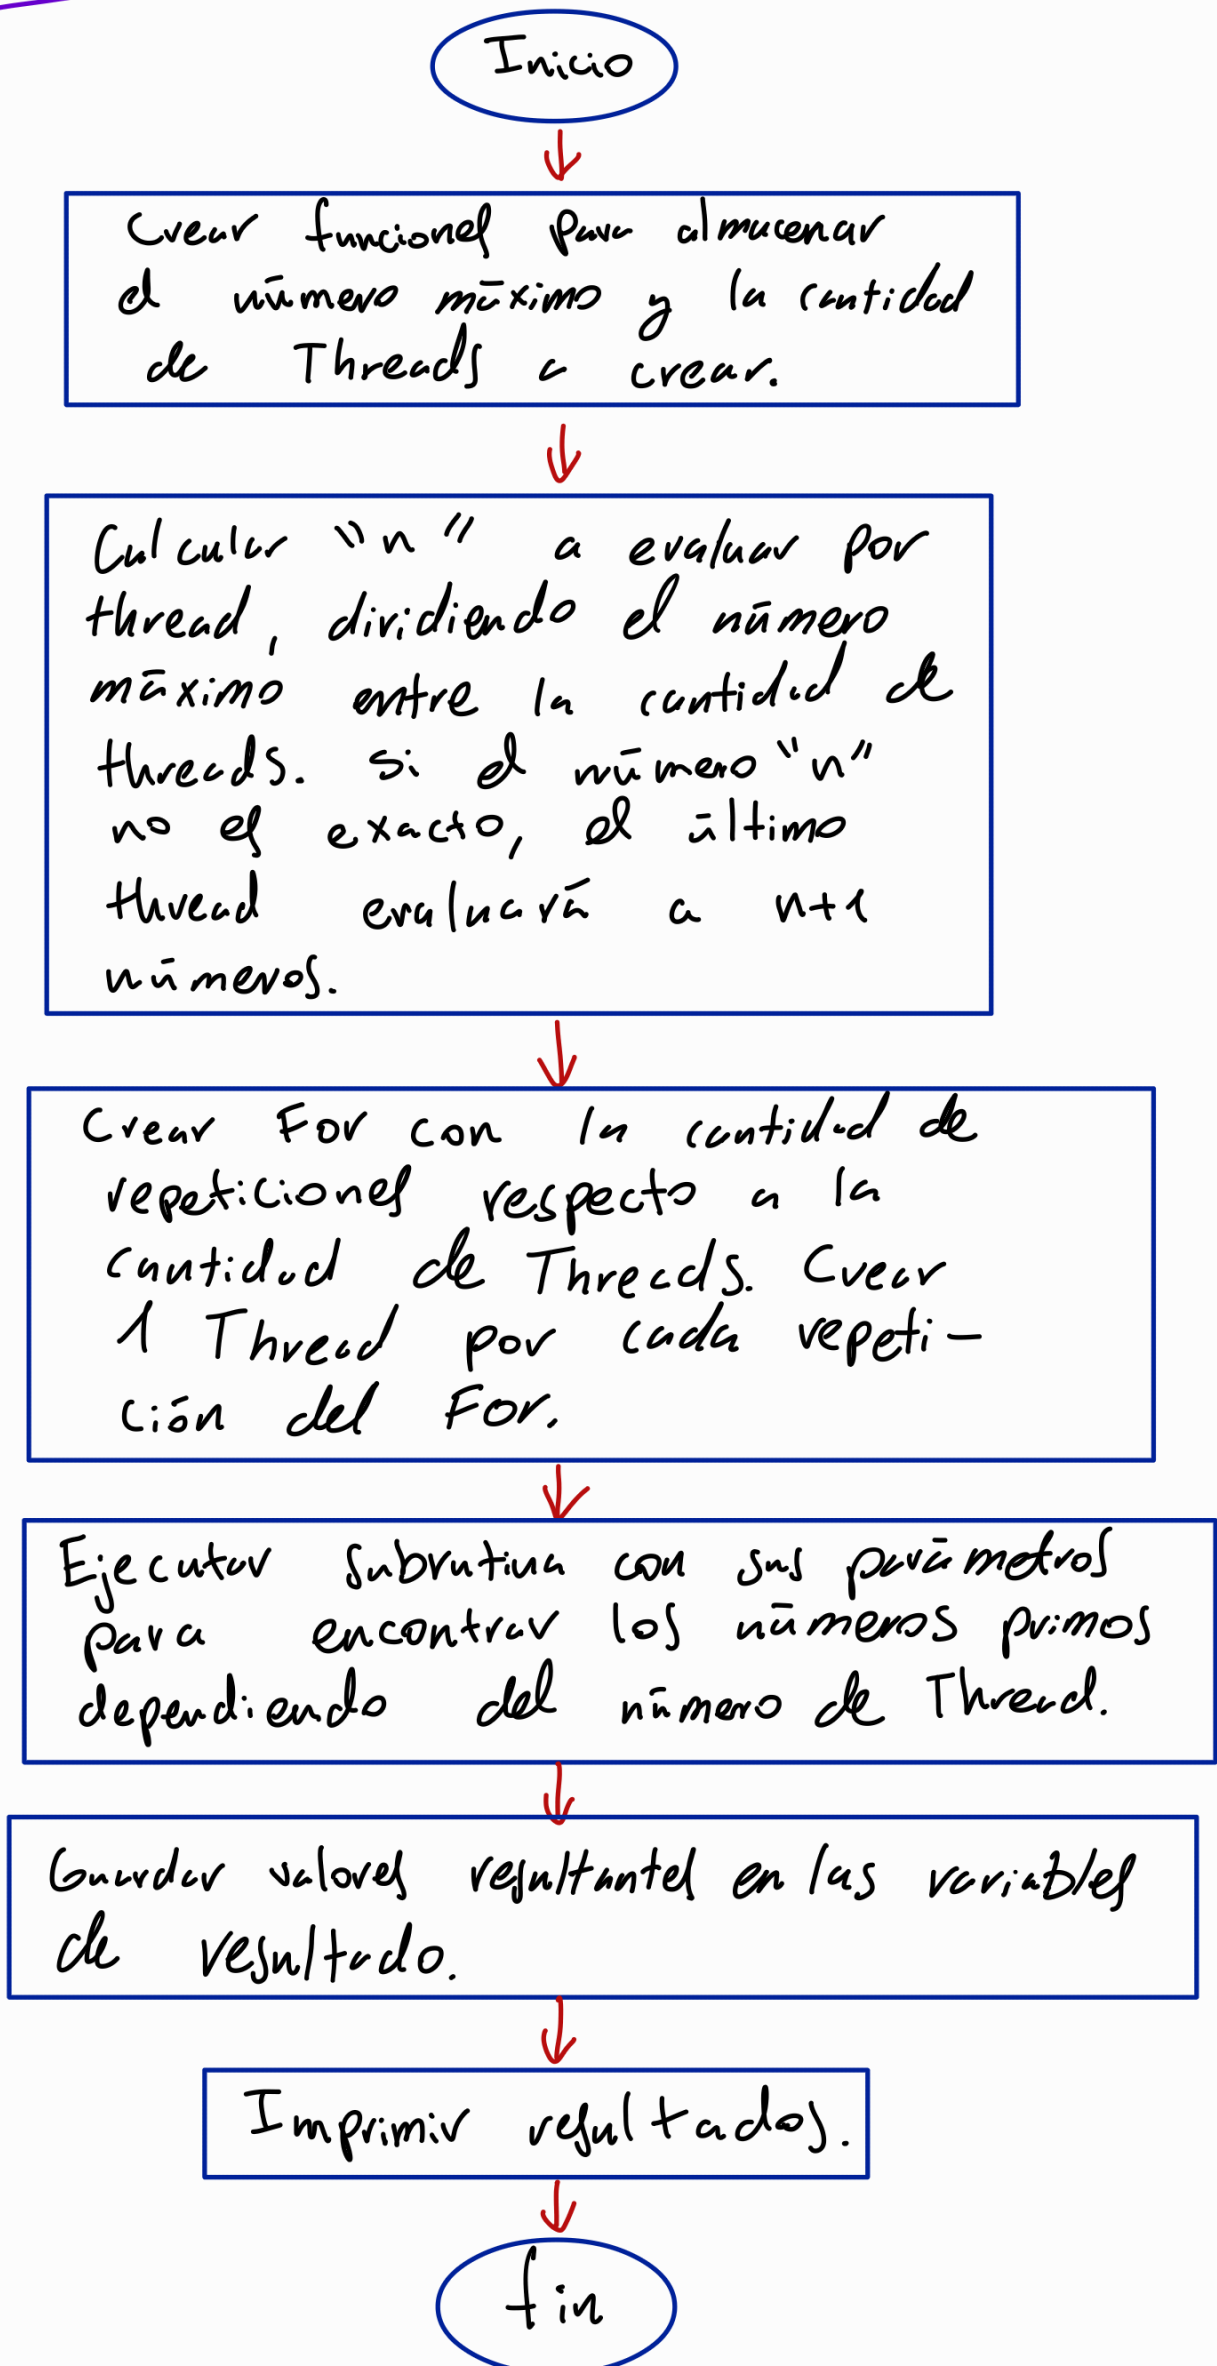 Inicio
Crear funciones para almacenar
el número máximo y la cantidad
de Threads a crear.
Calcular "n" a evaluar por
thread, dividiendo el número
máximo entre la cantidad de
threads. si el número "n"
no es exacto, el último
thread evaluará a n+1
números.
Crear For con la cantidad de
repeticiones respecto a la
cantidad de Threads. Crear
1 Thread por cada repeti-
ción del For.
Ejecutar subrutina con sus parámetros
para encontrar los números primos
dependiendo del número de Thread.
Guardar valores resultantes en las variables
de resultado.
Imprimir resultados.
fin